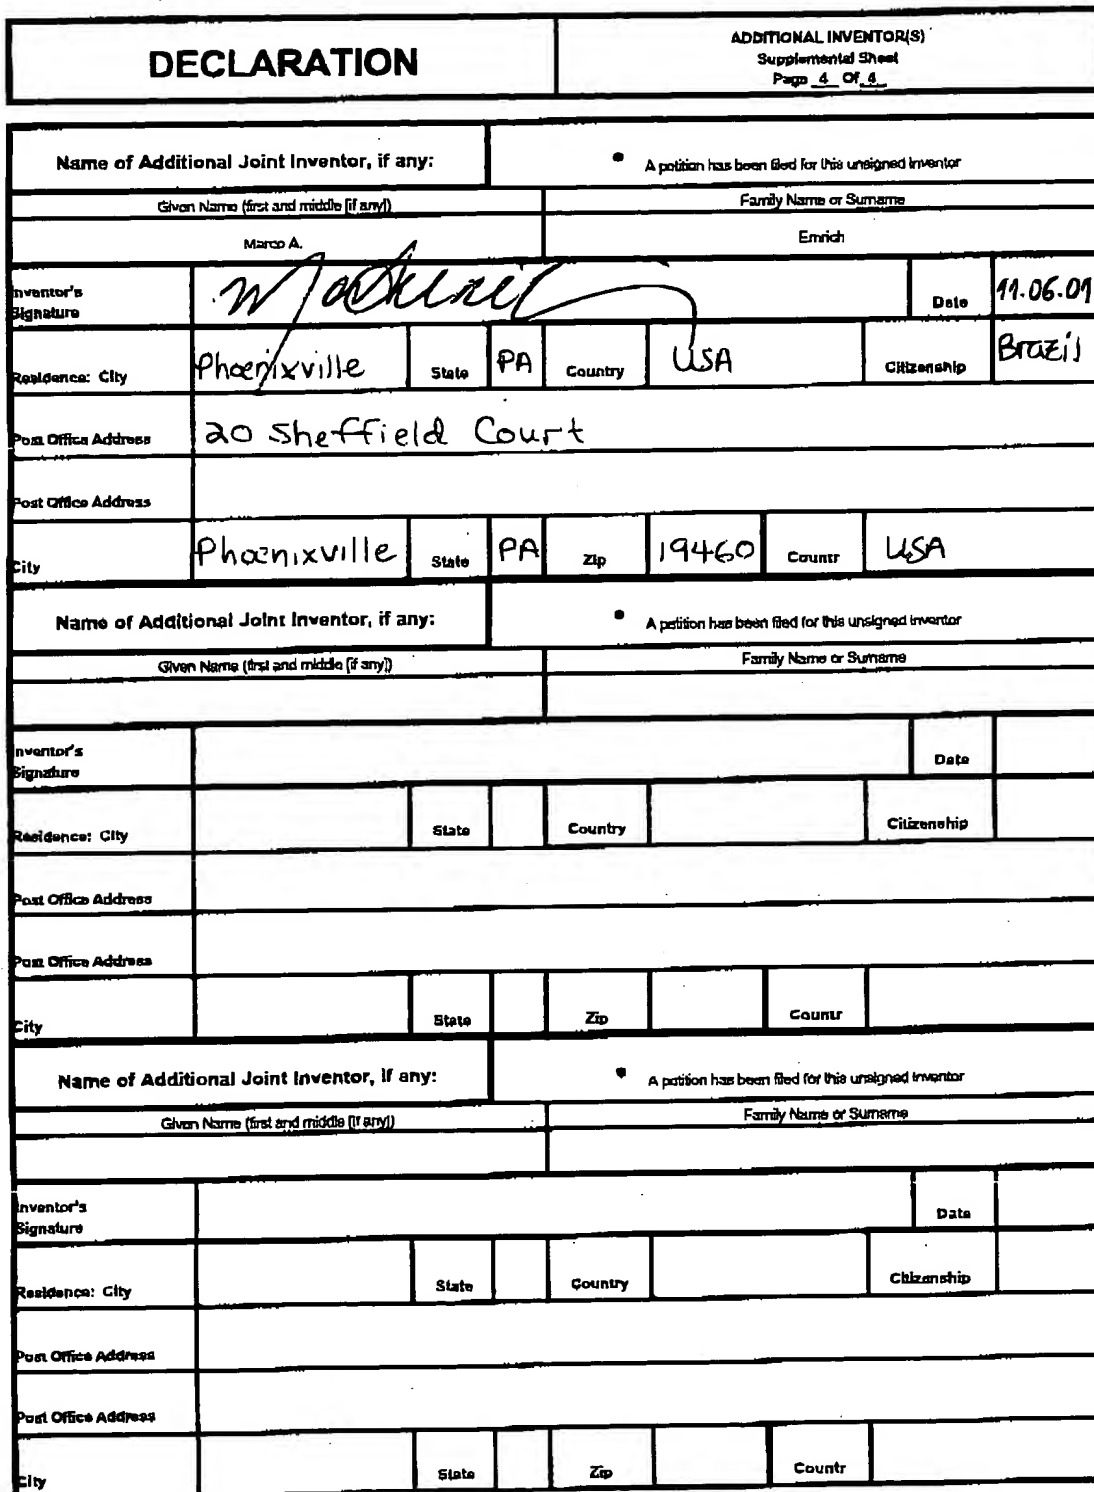 DECLARATION
ADDITIONAL INVENTOR(S)
Supplemental Sheet
Page 4 Of 4
Name of Additional Joint Inventor, if any:
• A petition has been filed for this unsigned inventor
Given Name (first and middle [if any])
Family Name or Surname
Marco A.
Emrich
Inventor's
Signature
Date
11.06.01
Residence: City
Phoenixville
State
PA
Country
USA
Citizenship
Brazil
Post Office Address
20 Sheffield Court
Post Office Address
City
Phoenixville
State
PA
Zip
19460
Countr
USA
Name of Additional Joint Inventor, if any:
• A petition has been filed for this unsigned inventor
Given Name (first and middle [if any])
Family Name or Surname
Inventor's
Signature
Date
Residence: City
State
Country
Citizenship
Post Office Address
Post Office Address
City
State
Zip
Countr
Name of Additional Joint Inventor, if any:
• A petition has been filed for this unsigned inventor
Given Name (first and middle [if any])
Family Name or Surname
Inventor's
Signature
Date
Residence: City
State
Country
Citizenship
Post Office Address
Post Office Address
City
State
Zip
Countr